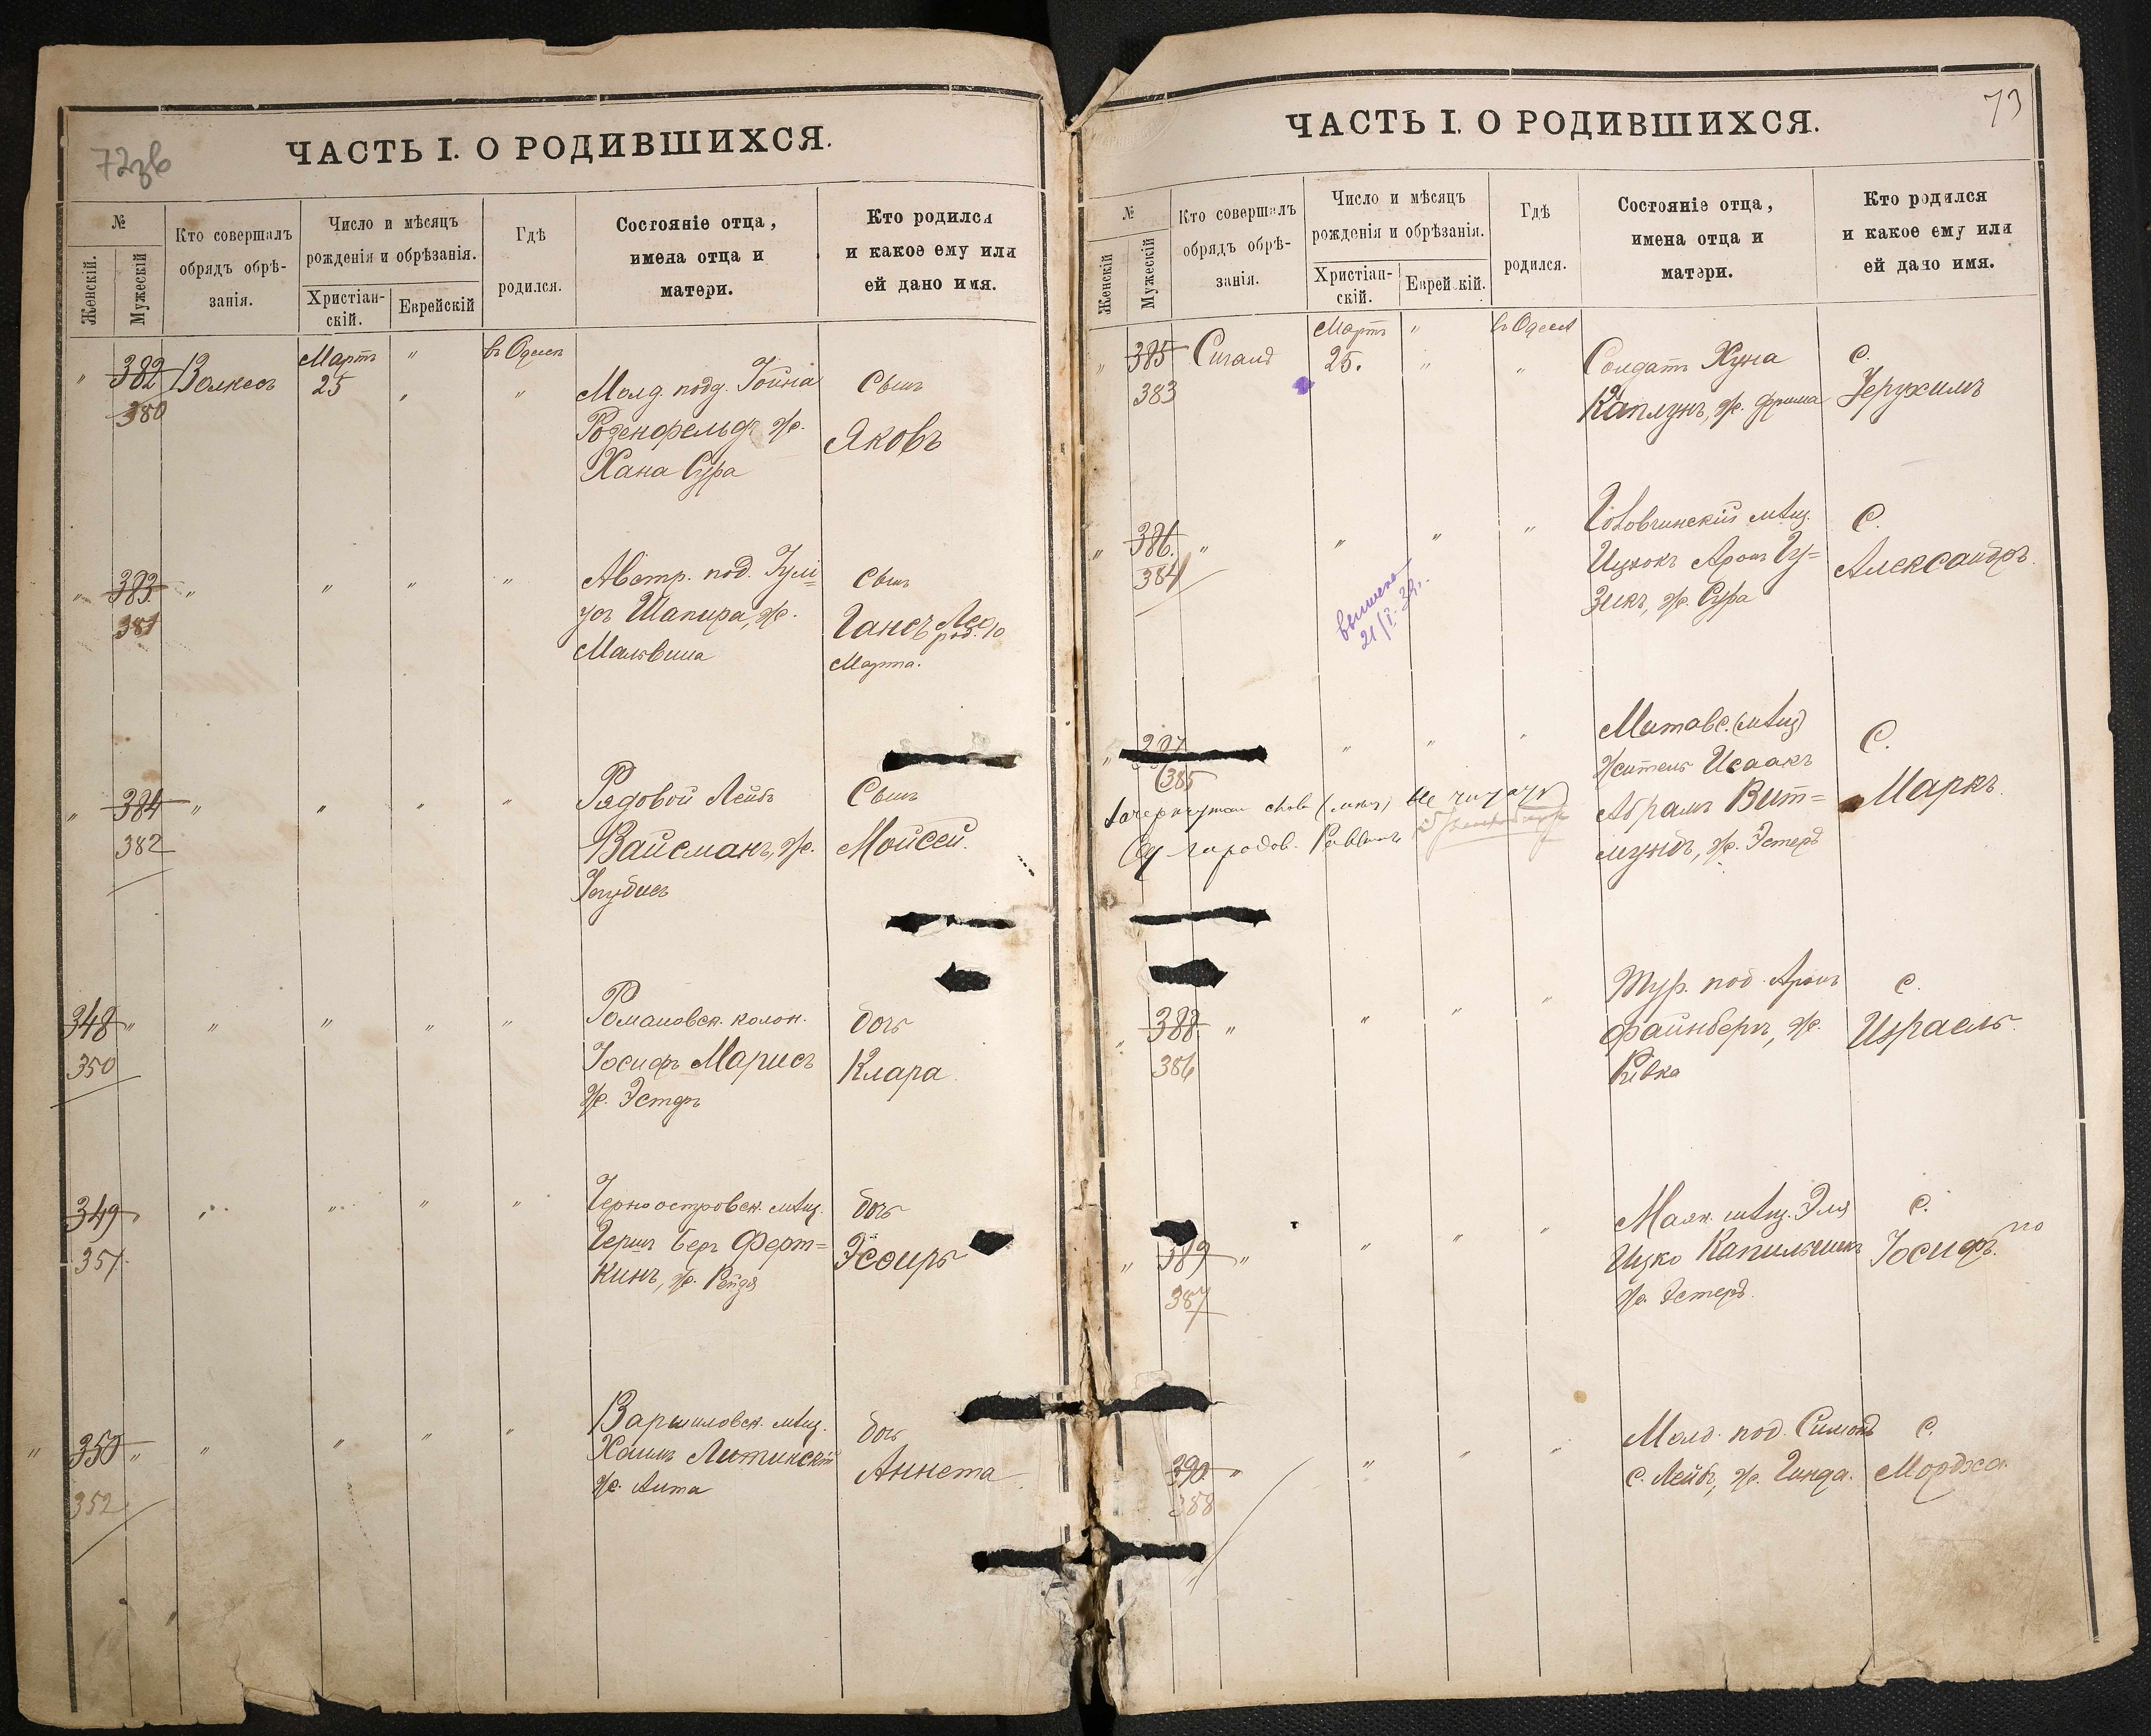 72зв
ЧАСТЬ I. О РОДИВШИХСЯ.
№
Женскій.
Мужескій
Кто совершалъ
обрядъ обрѣ-
занія.
Число и мѣсяцъ
рожденія и обрѣзанія.
Христіан-
скій.
Еврейскій
Гдѣ
родился.
Состояніе отца,
имена отца и
матери.
Кто родился
и какое ему или
ей дано имя.
" 382 Волкесъ Мартъ " въ Одессѣ
380 25 " "
Молд. подд. Іойна
Розенфельдъ, ж.
Хана Сура
Сынъ
Яковъ
" 383 " " " "
381
Австр. под. Юлі=
усъ Шапира, ж.
Мальвина
Сынъ
Гансъ Лео
род. 10
Марта.
" 384 " " " "
382
Рядовой Лейбъ
Вайсманъ, ж.
Сынъ
Моисей.
348 " " " " "
350
Романовск. колон.
Іосифъ Марисъ
ж. Эстеръ
дочь
Клара
349 " " " " "
351
Черноостровск. мѣщ.
Гершъ Беръ Ферт=
кинъ, ж. Рейзя
дочь
Эсѳирь
" 350 " " " " "
352
Варшиловск. мѣщ.
Хаимъ Литинскій
ж. Анта
дочь
Аннета
73
ЧАСТЬ I. О РОДИВШИХСЯ.
№
Женскій
Мужескій
Кто совершалъ
обрядъ обрѣ-
занія.
Число и мѣсяцъ
рожденія и обрѣзанія.
Христіан-
скій.
Еврейскій.
Гдѣ
родился.
Состояніе отца,
имена отца и
матери.
Кто родился
и какое ему или
ей дано имя.
" 385 Сигалъ Мартъ " въ Одессѣ
383 25. " "
Солдатъ Хуна
Каплунъ, ж. Фрима
С.
Іерухимъ
" 386. " " " "
384
мѣщ.
Ицхокъ Аронъ Гу=
зикъ, ж. Сура
С.
Александръ.
21/I-39г.
" 387 " " "
385
Зачеркнутая слова (мѣщ) не читать
Од городов. Раввинъ
Митавс. (мѣщ)
житель Исаакъ
Абрамъ Вит=
мундъ, ж. Эстеръ
С.
Маркъ.
" 388. " " " "
386
Тур. под. Аронъ
Файнбергъ, ж.
Ривка
С.
Израель.
" 389 " " " "
387
Маяк. мѣщ. Эля
Ицко Капильникъ
ж. Эстеръ.
С.
Іосифъ.
390. " " " "
388
Молд. под. Симонъ
С. Лейбъ, ж. Гинда.
С.
Мордхо.